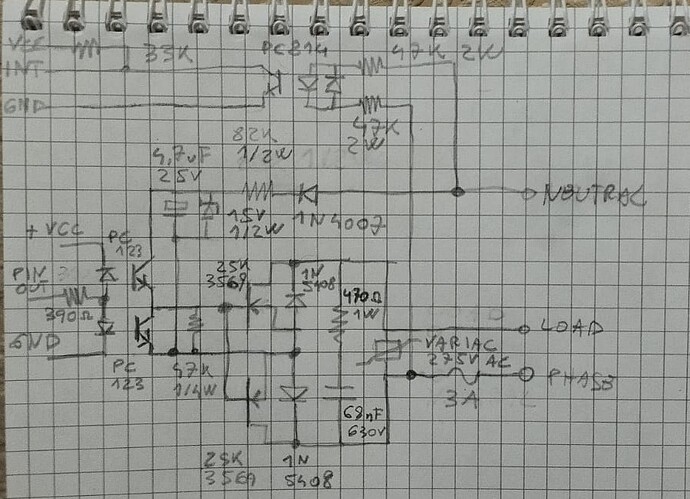 VCC
33K
PC814
47K 2W
INT
GND
47K
2W
82K
1/2W
4,7uF
25V
15V
1/2W
1N4007
NEUTRAL
+ VCC
PC
123
PIN
OUT
390Ω
2SK
3569
1N
5408
470Ω
1W
LOAD
GND
PC
123
47K
1/4W
VARIAC
275V AC
PHASE
3A
68nF
630V
2SK
3569
1N
5408